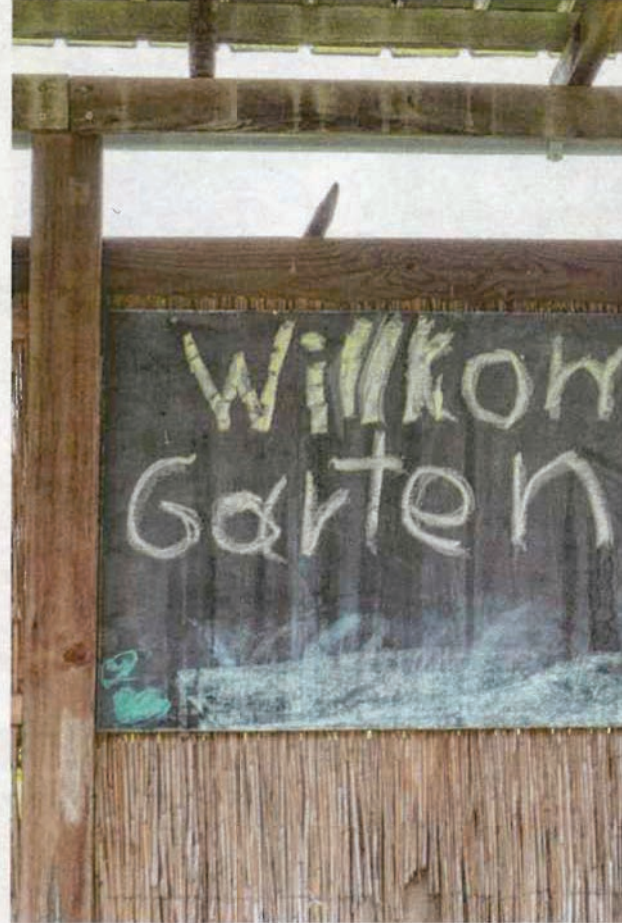 Willkom
Garten